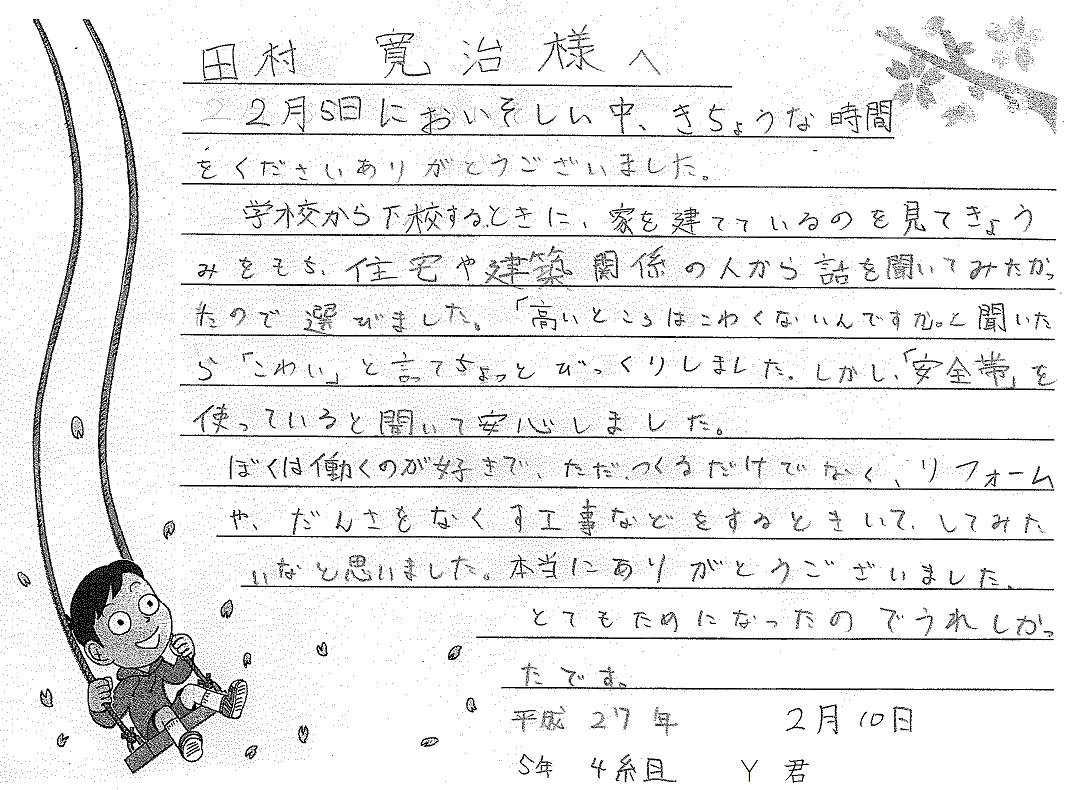 田村 寛治様へ
2月5日においそしい中、きちょうな時間
をくださいありがとうございました。
学校から下校するときに、家を建てているのを見てきょう
みをもち、住宅や建築関係の人から話を聞いてみたかっ
たので選びました。「高いところはこわくないんですか。と聞いた
ら「こわい」と言ってちょっとびっくりしました。しかし、「安全帯」を
使っていると聞いて安心しました。
ぼくは働くのが好きで、ただつくるだけでなく、リフォーム
や、だんさをなくす工事などをするときいて、してみた
いなと思いました。本当にありがとうございました、
とてもためになったのでうれしかっ
たです。
平成27年 2月10日
5年 4組 Y 君